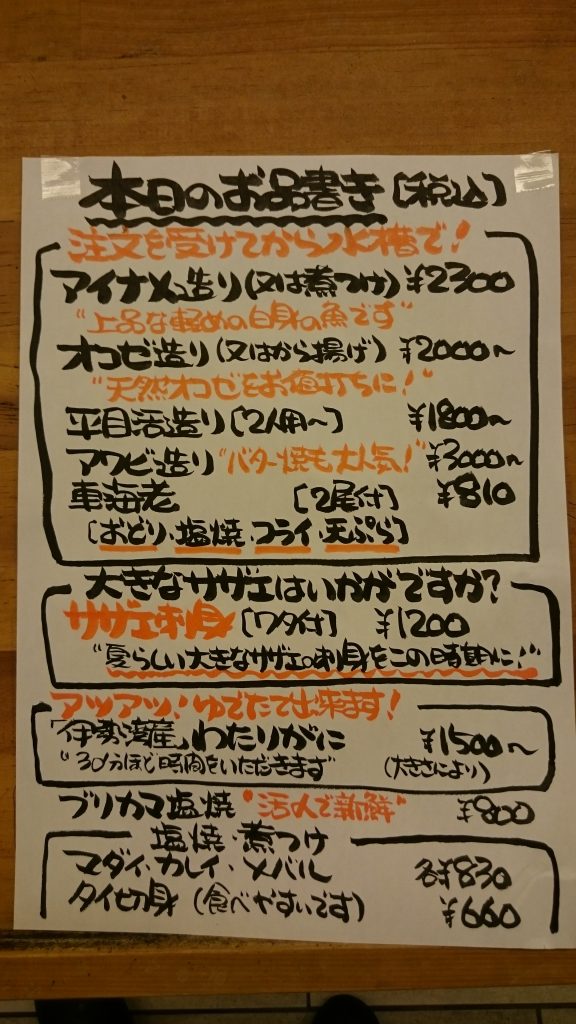 本日のお品書き[税込]
注文を受けてから水槽で!
アイナメ造り(又は煮つけ) ¥2300
"上品な軽めの白身の魚です"
オコゼ造り(又はから揚げ) ¥2000〜
"天然オコゼをお値打ちに!"
平目活造り[2人用〜] ¥1800〜
アワビ造り"バター焼も大人気!" ¥3000〜
車海老 [2尾付] ¥810
[おどり・塩焼・フライ・天ぷら]
大きなサザエはいかがですか?
サザエ刺身[ワタ付] ¥1200
"夏らしい大きなサザエの刺身をこの時期に!"
アツアツ!ゆでたて出来ます!
「伊勢湾産」わたりがに ¥1500〜
"30分ほど時間をいただきます" (大きさにより)
ブリカマ塩焼"活〆で新鮮" ¥800
塩焼・煮つけ
マダイ・カレイ・メバル 各¥830
タイ切身(食べやすいです) ¥660